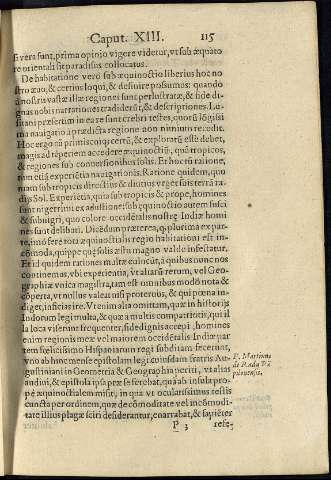 Caput. XIII. 115
si vera sunt, prima opinio vigere videtur, vt sub æquato
re orientali sit paradisus collocatus.
De habitatione vero sub æquinoctio liberius hoc no
stro æuo, & certius loqui, & definire possumus: quando
a nostris vastæ illæ regiones sunt perlustratæ, & fide di
gnis nobis narrationes traditur, & descriptiones. Lu-
sitani præsertim in ea re sunt crebri testes, quorū lōgissi
ma nauigatio a prædicta regione non nimium recedit.
Hoc ergo nū primis cōpicertū, & exploratū esse debet,
magis ad tēperiem accedere æquinoctiū, quā tropicos,
& regiones sub conuersionibus solis. Et hoc tū ratione,
tum etiā experiētia nauigationis. Ratione quidem, quo
niam sub tropicis directius & diutius vrget suis terrā ra-
dijs Sol. Experientia, quia sub tropicis & prope, homines
sunt nigerrimi ex adustione: sub æquinoctio autem fusci
& subnigri, quo colore occidentalis nostræ Indiæ homi
nes sunt delibati. Dicēdum præterea, q; plurima ex par-
te, imò fere tota æquinoctialis regio habitationi est in-
cōmoda, quippe quæ solis æstu magno valde inficitatur.
Et id quidem rationes multæ euincūt, a quibus nunc nos
continemus, vbi experientia, vt alíarū rerum, vel Geo-
graphiæ vnica magistra, tam est omnibus modò nota &
cōperta, vt nullus valeat nisi proteruus, & qui pœna in-
diget, inficias ire. Vt enim alia omittam, quæ in historijs
Indorum legi multa, & quæ a multis compatriotis, qui il
la loca viserunt frequenter, fide dignis accepi, homines
enim regionis meæ vel maiorem occidentalis Indiæ par
tem felicissimo Hispaniarum regi subditam fecerunt,
vno ab hinc mense epistolam legi cuiusdam fratris Au-
gustiniani in Geometria & Geographia periti, vt alias
audiui, & epistola ipsa præ se ferebat, quia ab insula pro-
pè æquinoctialem misit, in qua vt ocularissimus testis
cuncta per ordinem, quæ de cōmoditate vel incōmodi-
tate illius plagæ sciri desiderantur, enarrabat, & sapiēter
F. Martinus
de Rada Pā
pilonensis.
P 3 refe-